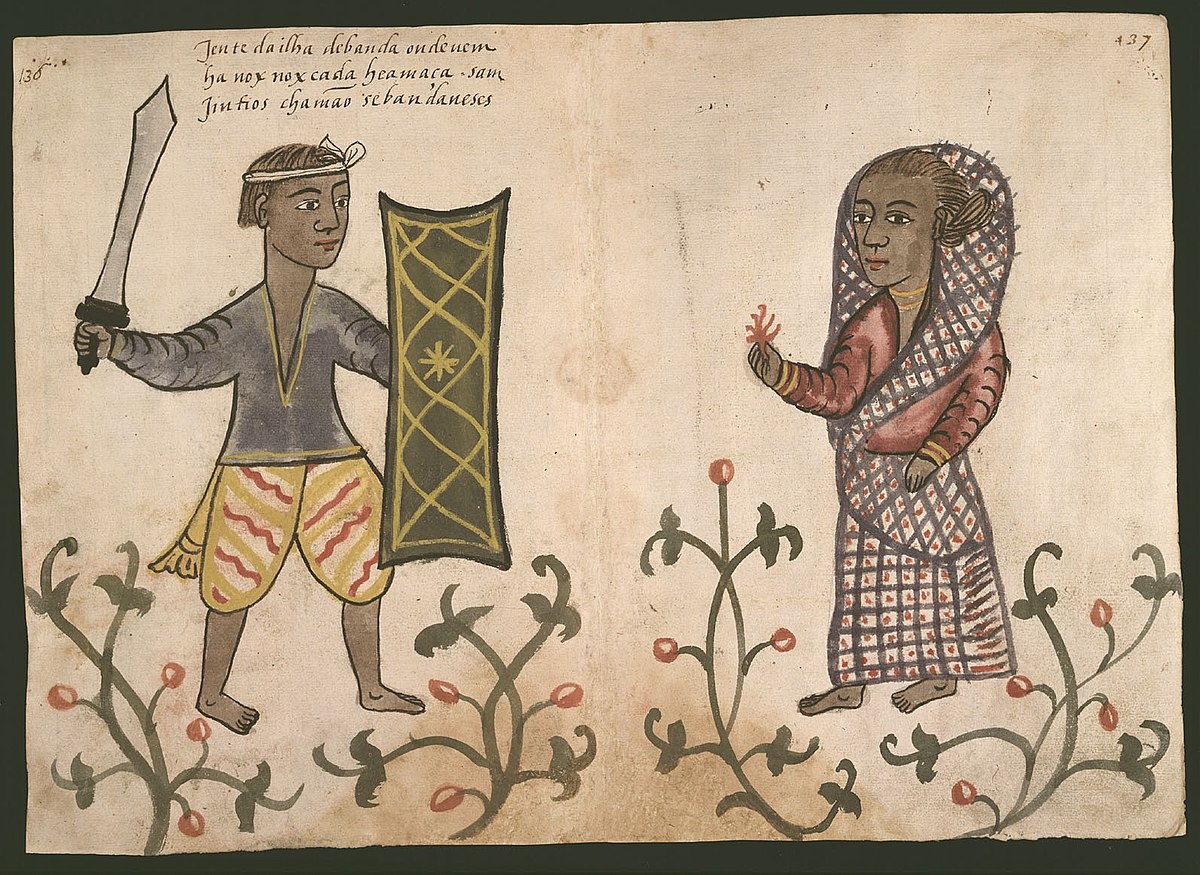 136
Jente da ilha de banda onde vem
ha nox nox cada he a maca . sam
Jintios chamão se bandaneses
137